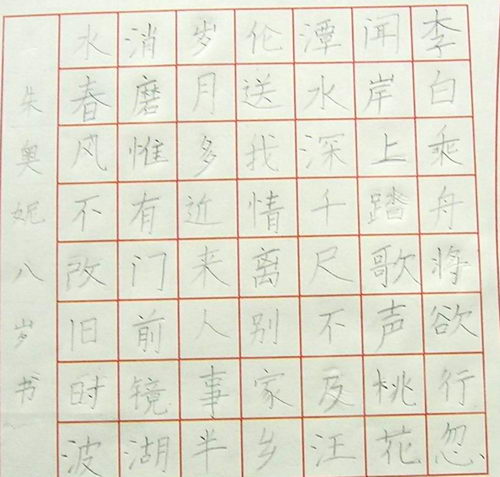 李白乘舟将欲行忽
闻岸上踏歌声桃花
潭水深千尺不及汪
伦送找情离别家乡
岁月多近来人事半
消磨惟有门前镜湖
水春风不改旧时波
朱奥妮八岁书